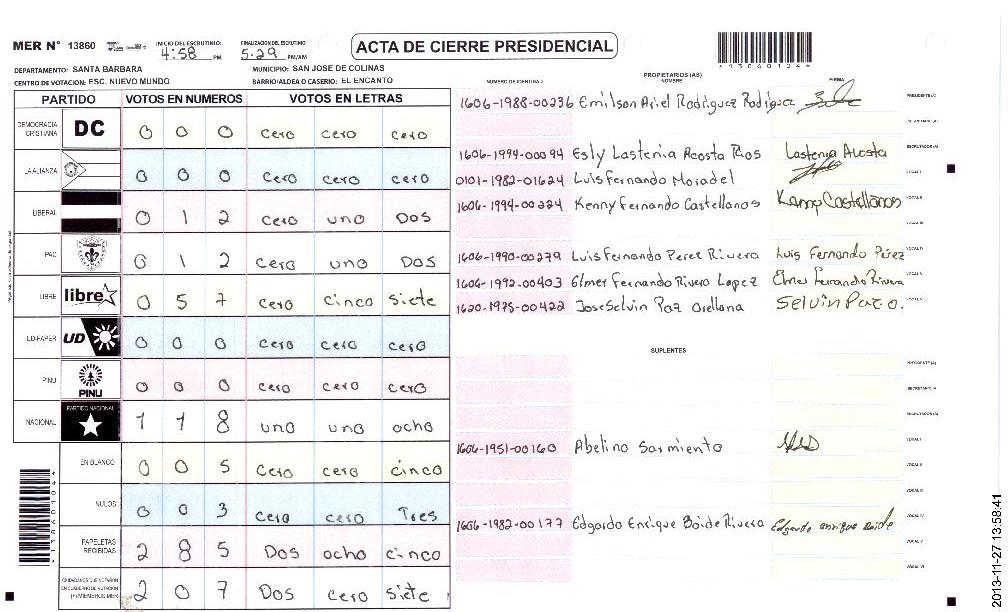 MER N° 13860 INICIO DEL ESCRUTINIO: 4:58 PM FINALIZACION DEL ESCRUTINIO 5:29 PM/AM ACTA DE CIERRE PRESIDENCIAL
DEPARTAMENTO: SANTA BARBARA MUNICIPIO: SAN JOSE DE COLINAS
CENTRO DE VOTACION: ESC. NUEVO MUNDO BARRIO/ALDEA O CASERIO: EL ENCANTO
PARTIDO VOTOS EN NUMEROS VOTOS EN LETRAS
DEMOCRACIA CRISTIANA DC 0 0 0 cero cero cero
LA ALIANZA 0 0 0 cero cero cero
LIBERAL 0 1 2 cero uno Dos
PAC 0 1 2 cero uno Dos
LIBRE libre 0 5 7 cero cinco siete
UD-FAPER UD 0 0 0 cero cero cero
PINU PINU 0 0 0 cero cero cero
NACIONAL PARTIDO NACIONAL 1 1 8 uno uno ocho
EN BLANCO 0 0 5 cero cero cinco
NULOS 0 0 3 cero cero Tres
PAPELETAS RECIBIDAS 2 8 5 Dos ocho cinco
CIUDADANOS QUE VOTARON EN CUADERNO DE VOTACION (+) MIEMBROS MER 2 0 7 Dos cero siete
PROPIETARIOS (AS)
NUMERO DE IDENTIDAD NOMBRE FIRMA
1606-1988-00236 Emilson Ariel Rodriguez Rodriguez PRESIDENTE (A)
SECRETARIO (A)
1606-1994-00094 Esly Lastenia Acosta Rios Lastenia Acosta ESCRUTADOR (A)
0101-1982-01624 Luis Fernando Moradel VOCAL I
1606-1994-00224 Kenny Fernando Castellanos Castellanos VOCAL II
VOCAL III
1606-1990-00279 Luis Fernando Perez Rivera Luis Fernando Pérez VOCAL IV
1606-1992-00403 Elmer Fernando Rivera Lopez Elmer Fernando Rivera VOCAL V
1620-1975-00422 Jose Selvin Paz Orellana Selvin Paz O. VOCAL VI
SUPLENTES
PRESIDENTE (A)
SECRETARIO (A)
ESCRUTADOR (A)
1606-1951-00160 Abelino Sarmiento VOCAL I
VOCAL II
VOCAL III
1606-1982-00177 Edgardo Enrique Boide Rivera Edgardo enrique Boide VOCAL IV
VOCAL V
VOCAL VI
2013-11-27 13:58:41